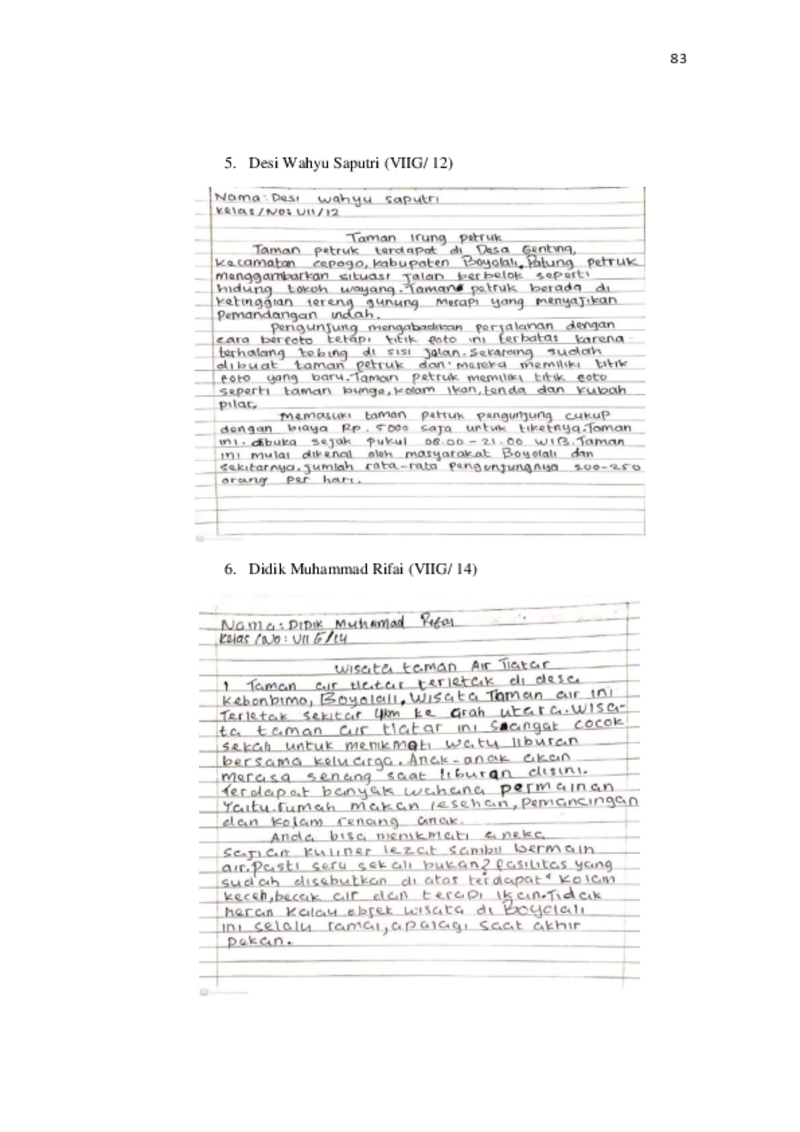 83
5. Desi Wahyu Saputri (VIIG/ 12)
Nama: Desi wahyu saputri
Kelas/No: VII/12
Taman irung petruk
Taman petruk terdapat di Desa Genting,
kecamatan cepogo, kabupaten Boyolali. Patung petruk
menggambarkan situasi jalan berbelok seperti
hidung tokoh wayang. Taman petruk berada di
ketinggian lereng gunung Merapi yang menyajikan
Pemandangan indah.
Pengunjung mengabadikan perjalanan dengan
cara berfoto tetapi titik foto ini terbatas karena
terhalang tebing di sisi jalan. Sekarang sudah
dibuat taman petruk dan mereka memiliki titik
foto yang baru. Taman petruk memiliki titik foto
seperti taman bunga, kolam ikan, tenda dan kubah
pilar.
Memasuki taman petruk pengunjung cukup
dengan biaya Rp. 5000 saja untuk tiketnya. Taman
ini. dibuka sejak pukul 08.00 - 21.00 WIB. Taman
ini mulai dikenal oleh masyarakat Boyolali dan
sekitarnya. jumlah rata-rata pengunjungnya 200-250
orang per hari.
6. Didik Muhammad Rifai (VIIG/ 14)
Nama: DIDIK Muhamad Rifai
Kelas /No: VII G/14
Wisata taman Air Tlatar
Taman air tlatar terletak di desa
Kebonbimo, Boyolali, Wisata Taman air ini
Terletak sekitar 4km ke arah utara. Wisa-
ta taman air tlatar ini sangat cocok
sekali untuk menikmati watu liburan
bersama keluarga. Anak-anak akan
merasa senang saat liburan disini.
Terdapat banyak wahana permainan
Yaitu. rumah makan lesehan, pemancingan
dan kolam renang anak.
Anda bisa menikmati aneka
sajian kuliner lezat sambil bermain
air. Pasti seru sekali bukan? fasilitas yang
sudah disebutkan di atas terdapat kolam
keceh, becak air dan terapi ikan. Tidak
heran kalau objek wisata di Boyolali
ini selalu ramai, apalagi saat akhir
pekan.